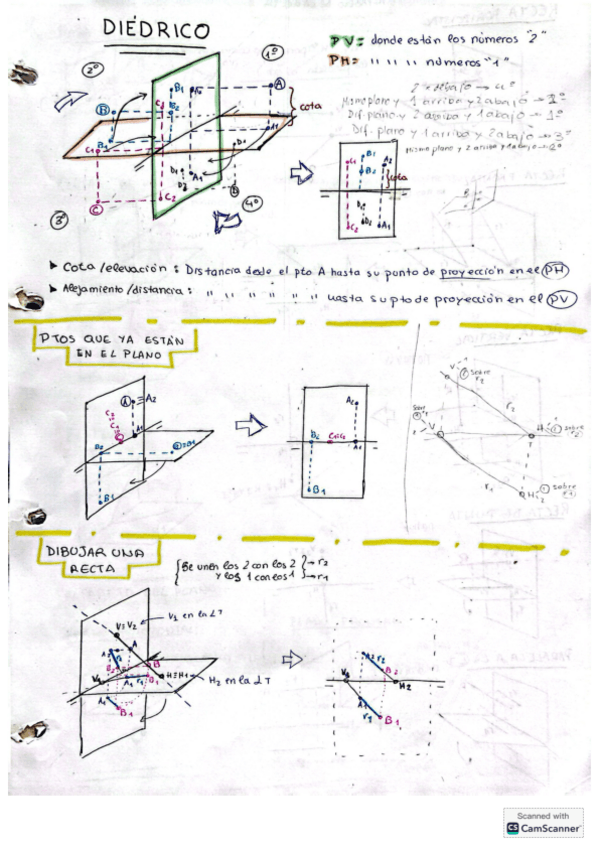 DIÉDRICO
PV = donde están los números "2"
PH = " " " " números "1"
1º
2º
3º
4º
cota
Mismo plano y 1 arriba y 2 abajo
Dif. plano y 2 arriba y 1 abajo → 1º
Dif. plano y 1 arriba y 2 abajo → 3º
Mismo plano y 2 arriba y 1 abajo → 2º
A
B
C
D
A1
B1
B2
C1
C2
D1
D2
C1
B1
A2
B2
cota
D2
D1
C2
A1
➤ Cota/elevación : Distancia desde el pto A hasta su punto de proyección en el PH
➤ Alejamiento/distancia : " " " " " " hasta su pto de proyección en el PV
PTOS QUE YA ESTÁN
EN EL PLANO
A ≡ A2
C2
C1
A1
B2
B1
A2
B2
C1≡C2
A1
B1
V
sobre
r2
r2
V
H
sobre
r2
r1
H
sobre
r1
DIBUJAR UNA
RECTA
Se unen los 2 con los 2 → r2
y los 1 con los 1 → r1
V1 en la LT
V≡V2
A2
A
B2
B
V1
A1
r1
B1
H≡H1
H2 en la LT
A1
B1
A2
r2
B2
V1
H2
A1
r1
B1
Scanned with
CS CamScanner